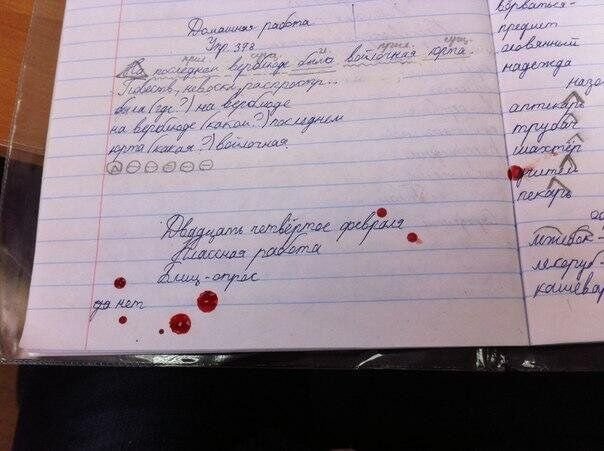 Домашняя работа
Упр. 378
прил. сущ. прил. сущ.
На последнем верблюде была войлочная юрта.
Повеств., невоскл., распростр...
была (где?) на верблюде
на верблюде (каком?) последнем
юрта (какая?) войлочная.
Двадцать четвёртое февраля
Классная работа
Блиц-опрос
да нет
ворваться-
предмет
оловянный
надежда
назо
аптекарь
трубач
шахтёр
пекарь
лесоруб-
кашевар